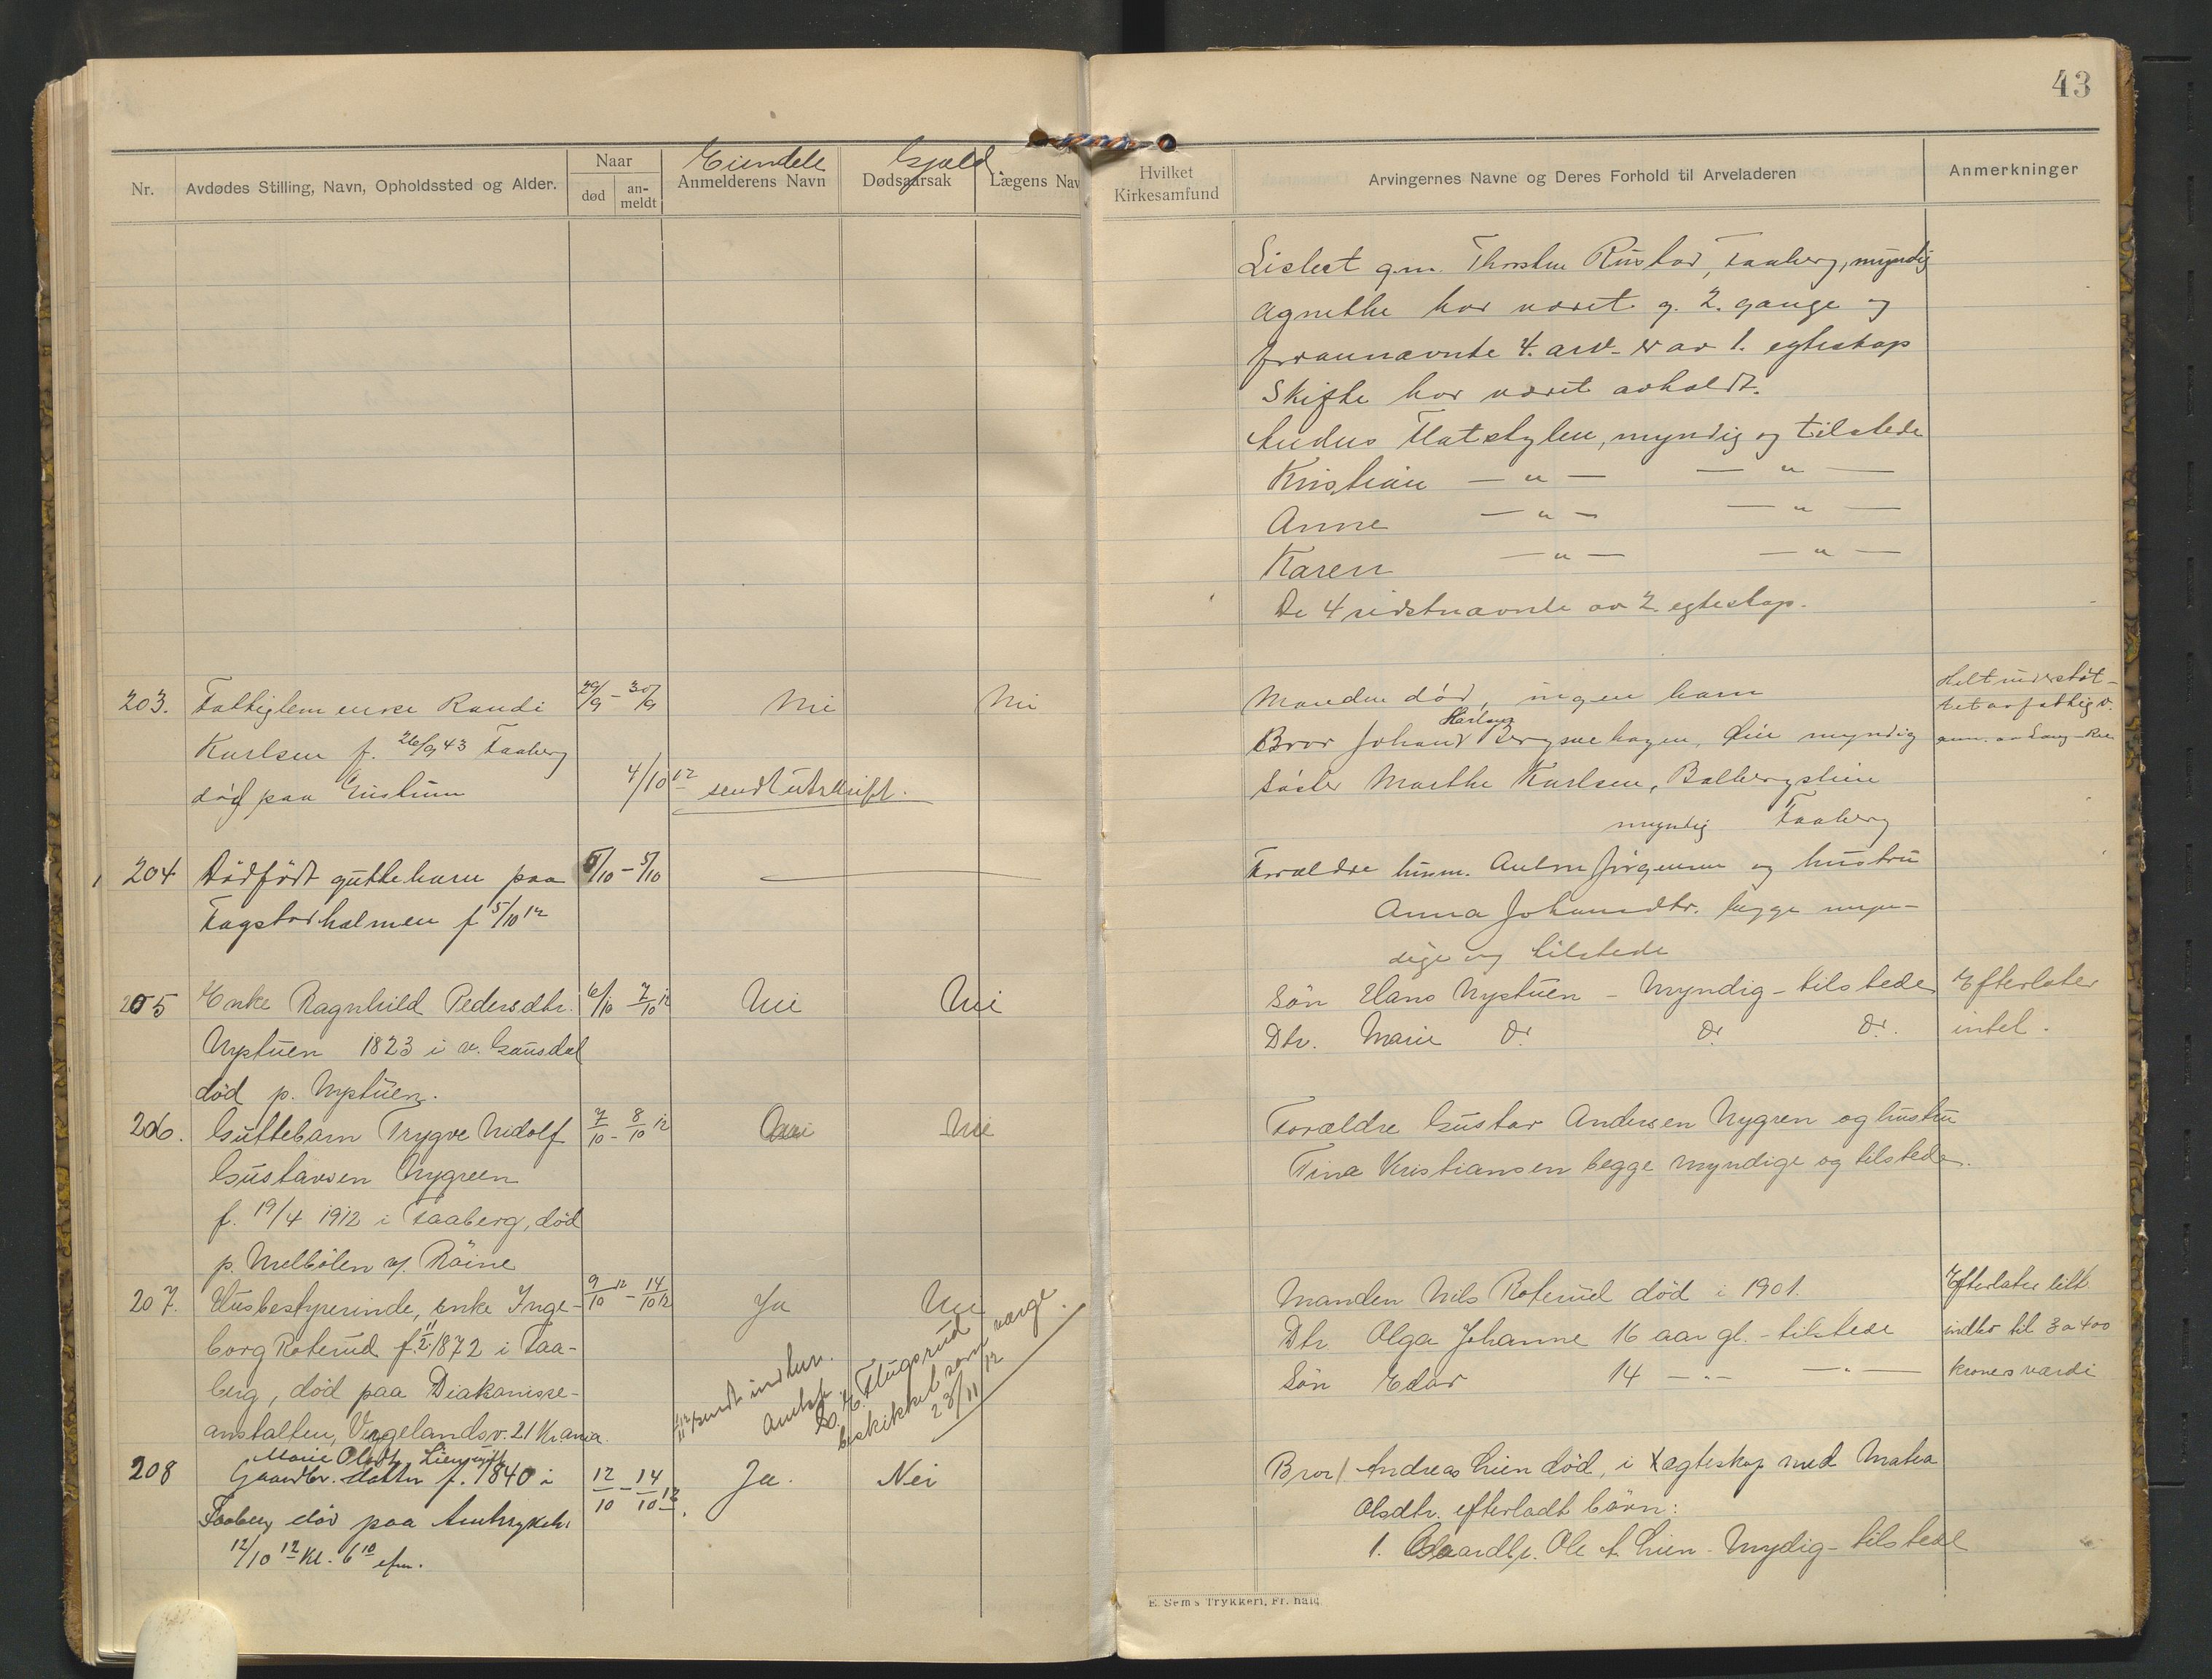 43
Nr.
Avdødes Stilling, Navn, Opholdssted og Alder.
Naar
død
an-
meldt
Eiendele
Anmelderens Navn
Gjæld.
Dødsaarsak
Lægens Nav
Hvilket
Kirkesamfund
Arvingernes Navne og Deres Forhold til Arveladeren
Anmerkninger
Lisbet g.m. Thorsten Rustad, Faaberg, myndig
Agnethe har været g. 2. gange og
forannævnte 4. arv. er av 1. egteskap
Skifte har været avholdt.
Flatstylen, myndig og tilstede
Kristian — " — — " —
Anne — " — — " —
Karen — " — — " —
De 4 sidstnævnte av 2. egteskap.
203. Fattiglem enke Randi 29/9 - 30/9 Nei Nei
Karlsen f. 26/9 43 Faaberg
død paa
4/10 12 sendt utskrift.
Manden død, ingen barn
Karlsen
Bror Johan myndig
Søster Marthe Karlsen, Balbergslien
myndig Faaberg
Helt understøt-
tet av fattigv.
204 Dødfødt guttebarn paa 5/10 - 5/10
Fagstadholmen f 5/10 12
Forældre husm. Anton Jørgensen og hustru
Anna Johansdtr. begge myn-
dige og tilstede
205 Enke Ragnhild Pedersdtr. 6/10 7/10 12 Nei Nei
Nystuen 1823 i v. Gausdal
død p. Nystuen.
Søn Hans Nystuen - Myndig - tilstede
Dtr. Marie Do. Do. Do.
Efterlater
intet.
206. Guttebarn Trygve Nidolf 7/10 - 8/10 12 Nei Nei
Gustavsen Nygreen
f. 19/4 1912 i Faaberg, død
p. Melbølen v/ Røine
Forældre Gustav Andersen Nygren og hustru
Tina Kristiansen begge myndige og tilstede.
207. Husbestyrerinde, enke Inge- 9/10 12 - 14/10 12 Ja Nei
borg Roterud f. 11/2 1872 i Faa-
berg, død paa Diakonisse-
anstalten, Vergelandsv. 21 Kr.ania.
sendt indber.
Flugsrud
beskikket som værge.
23/11 12
Manden Nils Roterud død i 1901.
Dtr. Olga Johanne 16 aar gl. - tilstede
Søn Edar 14 — " — — " —
Efterlater litt
indbo til 3 a 400
kroners værdi
Marie Olsdtr. Lien
208 Gaardbr. datter f. 1840 i 12/10 - 14/10 12. Ja. Nei
Faaberg død paa Amtssykeh.
12/10 12 Kl. 6 10 efm.
Bror/. Andreas Lien død, i ægteskap med Matea
Olsdtr. efterladt børn:
1. Gaardbr. Ole A. Lien - Mydig - tilstede
E. Sem's Trykkeri, Fr.hald